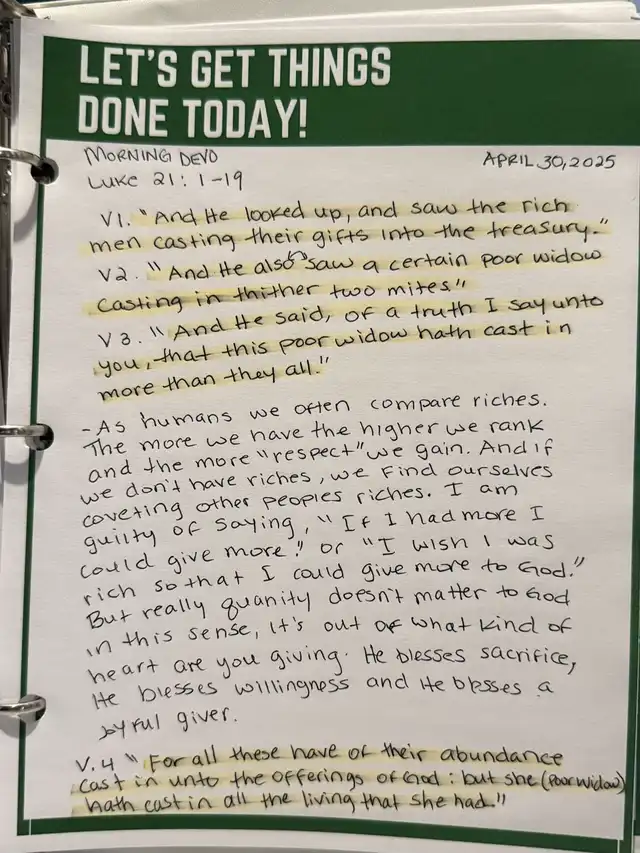 LET'S GET THINGS
DONE TODAY!
MORNING DEVO
APRIL 30, 2025
Luke 21: 1-19
V1. "And He looked up, and saw the rich
men casting their gifts into the treasury."
V2. "And He also saw a certain poor widow
casting in thither two mites"
V3. "And He said, of a truth I say unto
you, that this poor widow hath cast in
more than they all."
-As humans we often compare riches.
The more we have the higher we rank
and the more "respect" we gain. And if
we don't have riches, we find ourselves
coveting other peoples riches. I am
guilty of saying, "If I had more I
could give more." or "I wish I was
rich so that I could give more to God."
But really quanity doesn't matter to God
in this sense, it's out of what kind of
heart are you giving. He blesses sacrifice,
He blesses willingness and He blesses a
joyful giver.
V.4 "For all these have of their abundance
cast in unto the offerings of God: but she (poor widow)
hath cast in all the living that she had."